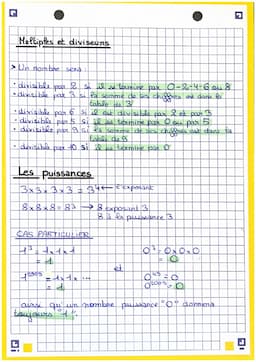 Multiples et diviseurs
> Un nombre sera :
• divisible par 2 si il se termine par 0-2-4-6 ou 8
• divisible par 3 si la somme de ses chiffres est dans la
table de 3
• divisible par 6 si il est divisible par 2 et par 3
• divisible par 5 si il se termine par 0 ou par 5
• divisible par 9 si la somme de ses chiffres est dans la
table de 9
• divisible par 10 si il se termine par 0
Les puissances
3×3×3×3 = 3⁴ ← exposant
8×8×8 = 8³ → 8 exposant 3
8 à la puissance 3
CAS PARTICULIER
1³ = 1×1×1
= 1
et
0³ = 0×0×0
= 0
= 1×1×...
= 1
= 0
= 0
ainsi qu'un nombre puissance "0" donnera
toujours "1"